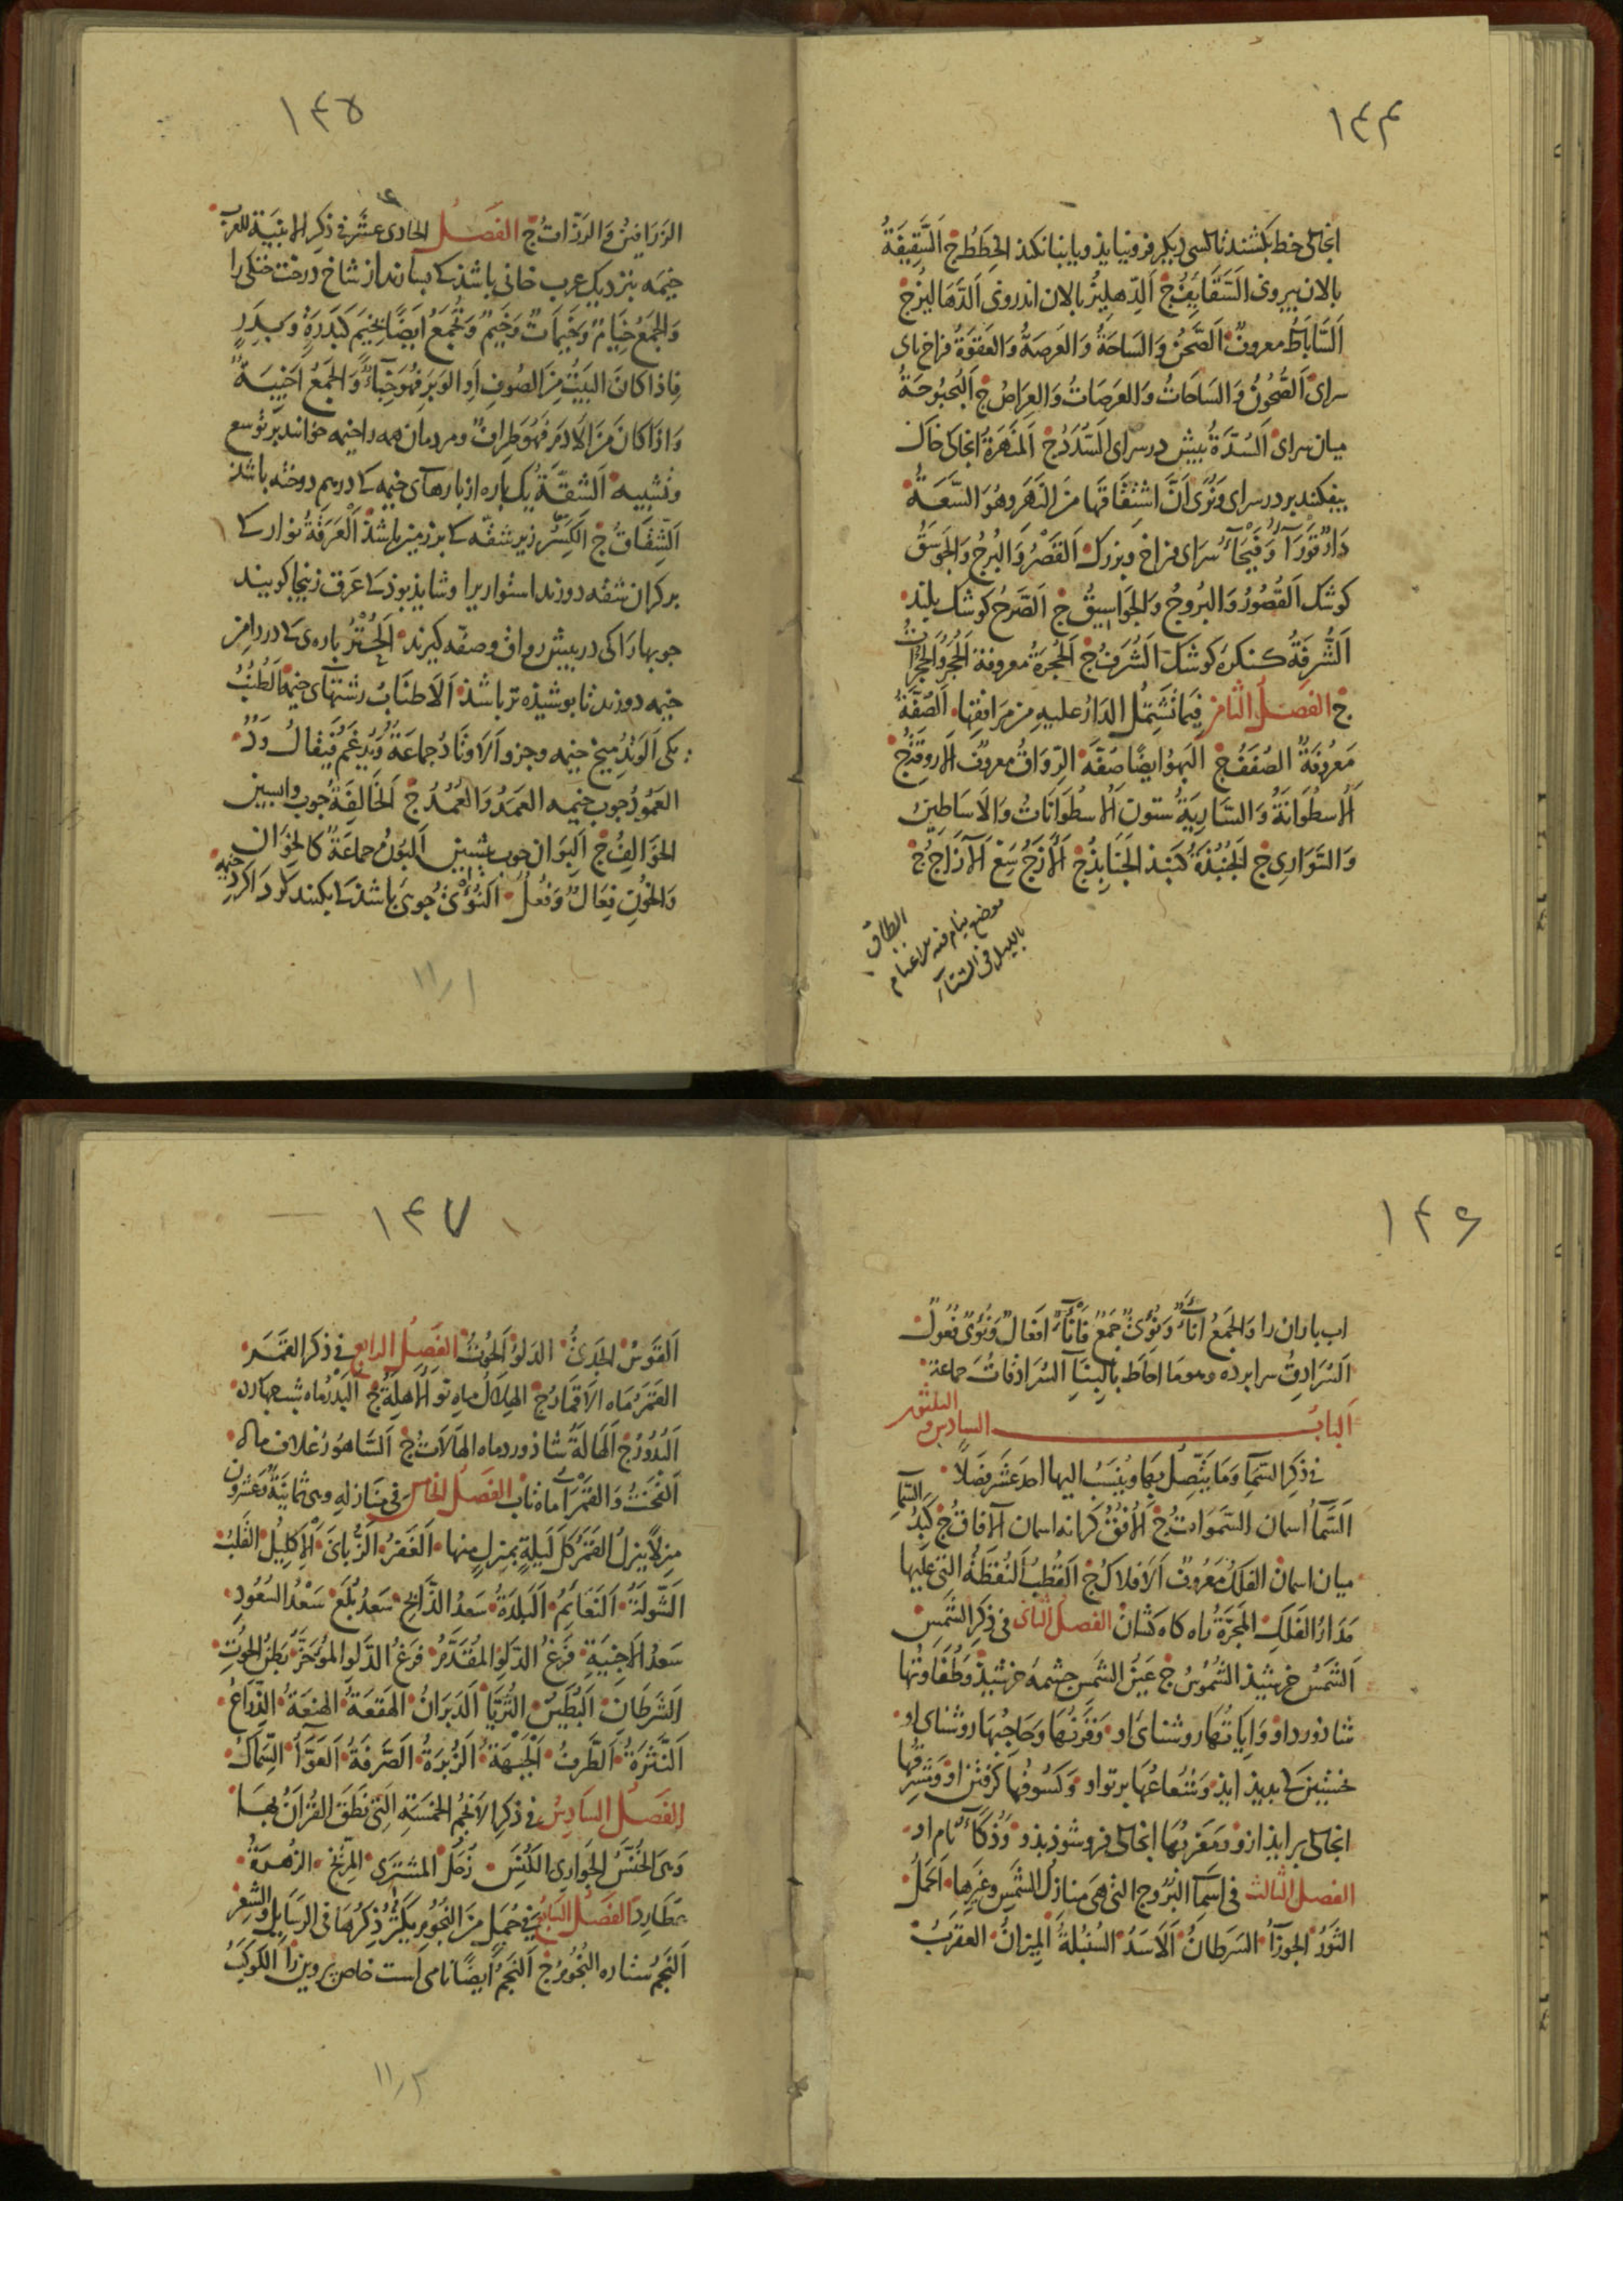 ۱۴۴
انجاکی خط بکشند تا کسی دیکر فرو نیاید و یا بنا نکند الخِطَطُ ج اَلسَّقِیفَةُ
بالان بیرونی السَّقَایِفُ ج اَلدِّهلِیزُ بالان اندرونی اَلدَّهَالِیزُ ج
اَلسَّابَاطُ معروفٌ اَلصَّحنُ وَالسَاحَةُ وَالعَرصَةُ وَالعَقوَةُ فراخ نای
سرای اَلصُّحُونُ وَالسَاحَاتُ وَالعَرَصَاتُ وَالعِرَاصُ ج اَلبُحبُوحَةُ
میان سرای اَلسُدَّةُ بیش در سرای السُّدَدُ ج اَلمَنهَرَةُ انجاکی خاک
بیفکنند بر در سرای وَنُرَی اَنَّ اشتِقَاقَهَا مِنَ النَهَرِ وهُوَ السَّعَةُ
دَارٌ قَوْرَآءُ وَفَیْحَآءُ سَرای فراخ و بزرک اَلقَصْرُ وَالبُرجُ وَالجَوسَقُ
کوشک اَلقُصُورُ وَالبُرُوجُ وَالجَوَاسِیقُ ج اَلصَّرحُ کوشک بلند
اَلشُّرفَةُ کنکرۀ کوشک اَلشُّرَفُ ج اَلحُجرَةُ معروفة اَلحُجَرُ وَالحُجُرَاتُ
ج الفصلُ الثامن فِیمَا تَشتَمِلُ الدَارُ علیهِ مِن مَرَافِقِهَا اَلصُفَّةُ
مَعرُوفَةٌ الصُفَفُ ج اَلبَهوُ ایضًا صُفَّة اَلرِّوَاقُ معروفٌ اَلاَروِقَةُ ج
اَلاُسطُوَانَةُ وَالسَّارِیَةُ ستون اَلاُسطُوَانَاتُ وَالاَسَاطِینُ
وَالسَّوَارِی ج اَلجُنبُذَةُ کنبذ الجَنَابِذُ ج اَلاَزَجُ سَغ اَلآزَاجُ ج
الطاق
موضع ینام فیه الاغنام
باللیل فی الشتآء
۱۴۵
الزَرَافِینُ وَالرَزّاتُ ج الفَصلُ الحادی عشر فی ذکر الابنیة للعرب
خیمَه بنزدیک عرب خانی باشذ کی بسازند از شاخ درخت خنکی را
وَالجَمعُ خِیَامٌ وَخَیمَاتٌ وَخَیمٌ وَتُجمَعُ اَیضًا بِخِیَمٍ کَبَدرَةٍ وَبِدَرٍ
فاِذا کانَ البَیتُ مِنَ الصُوفِ اَوِ الوَبَرِ فَهُوَ خِبَآءٌ وَالجَمعُ اَخبِیَةٌ
وَاِذَا کَانَ مِنَ الاَدَمِ فَهُوَ طِرَافٌ و مردمان همه را خیمه خوانند بر توسع
و تشبیه اَلشُقَّةُ یک باره از بارهای خیمه کی درهم دوخته باشذ
اَلشِّقَاقُ ج اَلکِسرُ زیر شقّه کی بر زمین باشذ اَلعَرَقَةُ نوار کی
بر کران شقه دوزند استواریرا و شایذ بوذ کی عَرَق زنیجا کویند
جوبها را کی در بیش رواق و صفّه کیرند اَلحُتْرُ باره‌ی کی در دامن
خیمه دوزند تا بوشیذه تر باشذ اَلاَطنَابُ رشتهای خیمه اَلطُنُبُ
یکی اَلوَتِدُ میخ خیمه وجزو اَلاَوتَادُ جماعَةٌ وَیُدغَمُ فَیُقَالُ وَدٌّ
العَمُودُ جوب خیمه العَمَدُ وَالعُمُدُ ج اَلخَالِفَةُ جوب وابسین
الخَوَالِفُ ج اَلبَوَانُ جوب بیشین اَلبُونُ جماعَةٌ کالخِوَانِ
وَالخُونِ فِعَالٌ وَفُعلٌ اَلنُؤیُ جُوی باشذ کی بکنند کرد اکرد
خیمه
۱۱/۱
۱۴۶
اب باران را وَالجَمعُ اَنآءٌ وَنُؤیٌ جَمعٌ فَاَنآءٌ اَفعَالٌ وَنُؤیٌ فُعُولٌ
اَلسُرَادِقُ سرابرده وهوما احَاطَ بِالبِنَآءِ السُرَادِقَاتُ جماعة
اَلبابُ السادس و الثلثون
فی ذکرِ السمَآءِ وَمَا یَتَّصِلُ بِهَا ویُنسَبُ الیها احدَ عشَرَ فصلاً
اَلسَّمَآءُ اسمان السَّمَوَاتُ ج اَلاُفُقُ کرانه اسمان اَلآفَاقُ ج کَبِدُ السَّمَآءِ
میان اسمان الفَلَکُ مَعرُوفٌ اَلاَفلاکُ ج اَلقُطبُ اَلنُقطَةُ التی علیها
مَدَارُ الفَلَکِ اَلمَجَرَّةُ راه کاه کشان الفصلُ الثانی فی ذکر الشَّمسِ
اَلشَمسُ خرشیذ الشُمُوسُ ج عَینُ الشَمسِ جشمۀ خرشیذ وَطُفَاوَتُهَا
شاذورد او وَاِیَاتُهَا روشنای او وَقَرنُهَا وَحَاجِبُهَا روشنای او
خستین کی بدیذ ایذ وَشُعَاعُهَا برتو او وَکُسُوفُها کرفتن او وَمَشرِقُها
انجاکی بر ایذ ازو وَمَغرِبُهَا انجاکی فرو شوذ بذو وَذُکَآءُ نام او
الفصل الثالث فی اَسمَآءِ البُرُوج التی هی منازلُ الشَّمسِ وغَیرِها اَلحَمَلُ
الثَورُ الجَوزَآءُ السَرَطَانُ اَلاَسَدُ السُنبُلَةُ المِیزَانُ العَقرَبُ
۱۴۷
اَلقَوسُ الجَدیُ الدَلوُ اَلحُوتُ الفصلُ الرابع فی ذکر القَمَر
القَمَرُ مَاه الاَقمَارُ ج الهِلاَلُ ماه نو اَلاَهِلَّةُ ج اَلبَدرُ ماه شب جهارده
اَلبُدُورُ ج اَلهَالَةُ شاذورد ماه الهَالاَتُ ج اَلسَّاهُورُ غلاف ماه
اَلفَخْتُ وَالقَمْرَآءُ ماه تاب الفصلُ الخامس فی منازِلِهِ وهی ثَمانِیَةٌ وَعشرُون
منزِلاً ینزِلُ القَمَرُ کُلَّ لَیلَةٍ بمنزِلٍ منها اَلغَفرُ الزُّبانَی اَلاِکلِیلُ القَلبُ
الشَّولَةُ اَلنَعَایِمُ اَلبَلدَةُ سَعدُ الذَّابِحِ سَعدُ بُلَعَ سَعْدُ السُعُودِ
سَعدُ الاَخبِیَةِ فَرغُ الدَلوِ المُقَدَّمُ فرَغُ الدَّلوِ المُؤَخَّرُ بَطنُ الحُوتِ
الشَرَطَانِ اَلبُطَینُ الثُرَیَّا اَلدَبَرَانُ اَلهَقعَةُ الهَنعَةُ الذِّرَاعُ
اَلنَّثرَةُ اَلطَّرفُ اَلجَبهَةُ اَلزُبرَةُ اَلصَّرفَةُ اَلعَوَّآءُ السِّمَاکُ
الفَصلُ السَّادِسُ فی ذکر الاَنجُمِ الخَمسَةِ التی نَطَقَ القُرآنُ بِهَا
وَهی الخُنَّسُ الجَوَاری الکُنَّسُ زُحَلُ المشترَی المِرِّیخُ الزُهَرَةُ
عُطَارِدُ الفصلُ السَّابِعُ فی جُمَلٍ مِنَ النُجُومِ یَکثُرُ ذِکرُهَا فی الرسَایِلِ والشعر
اَلنَجمُ ستاره النُجُومُ ج اَلنَجمُ اَیضًا نامی است خاص بروین را الکَوکَبُ
۱۱/۲